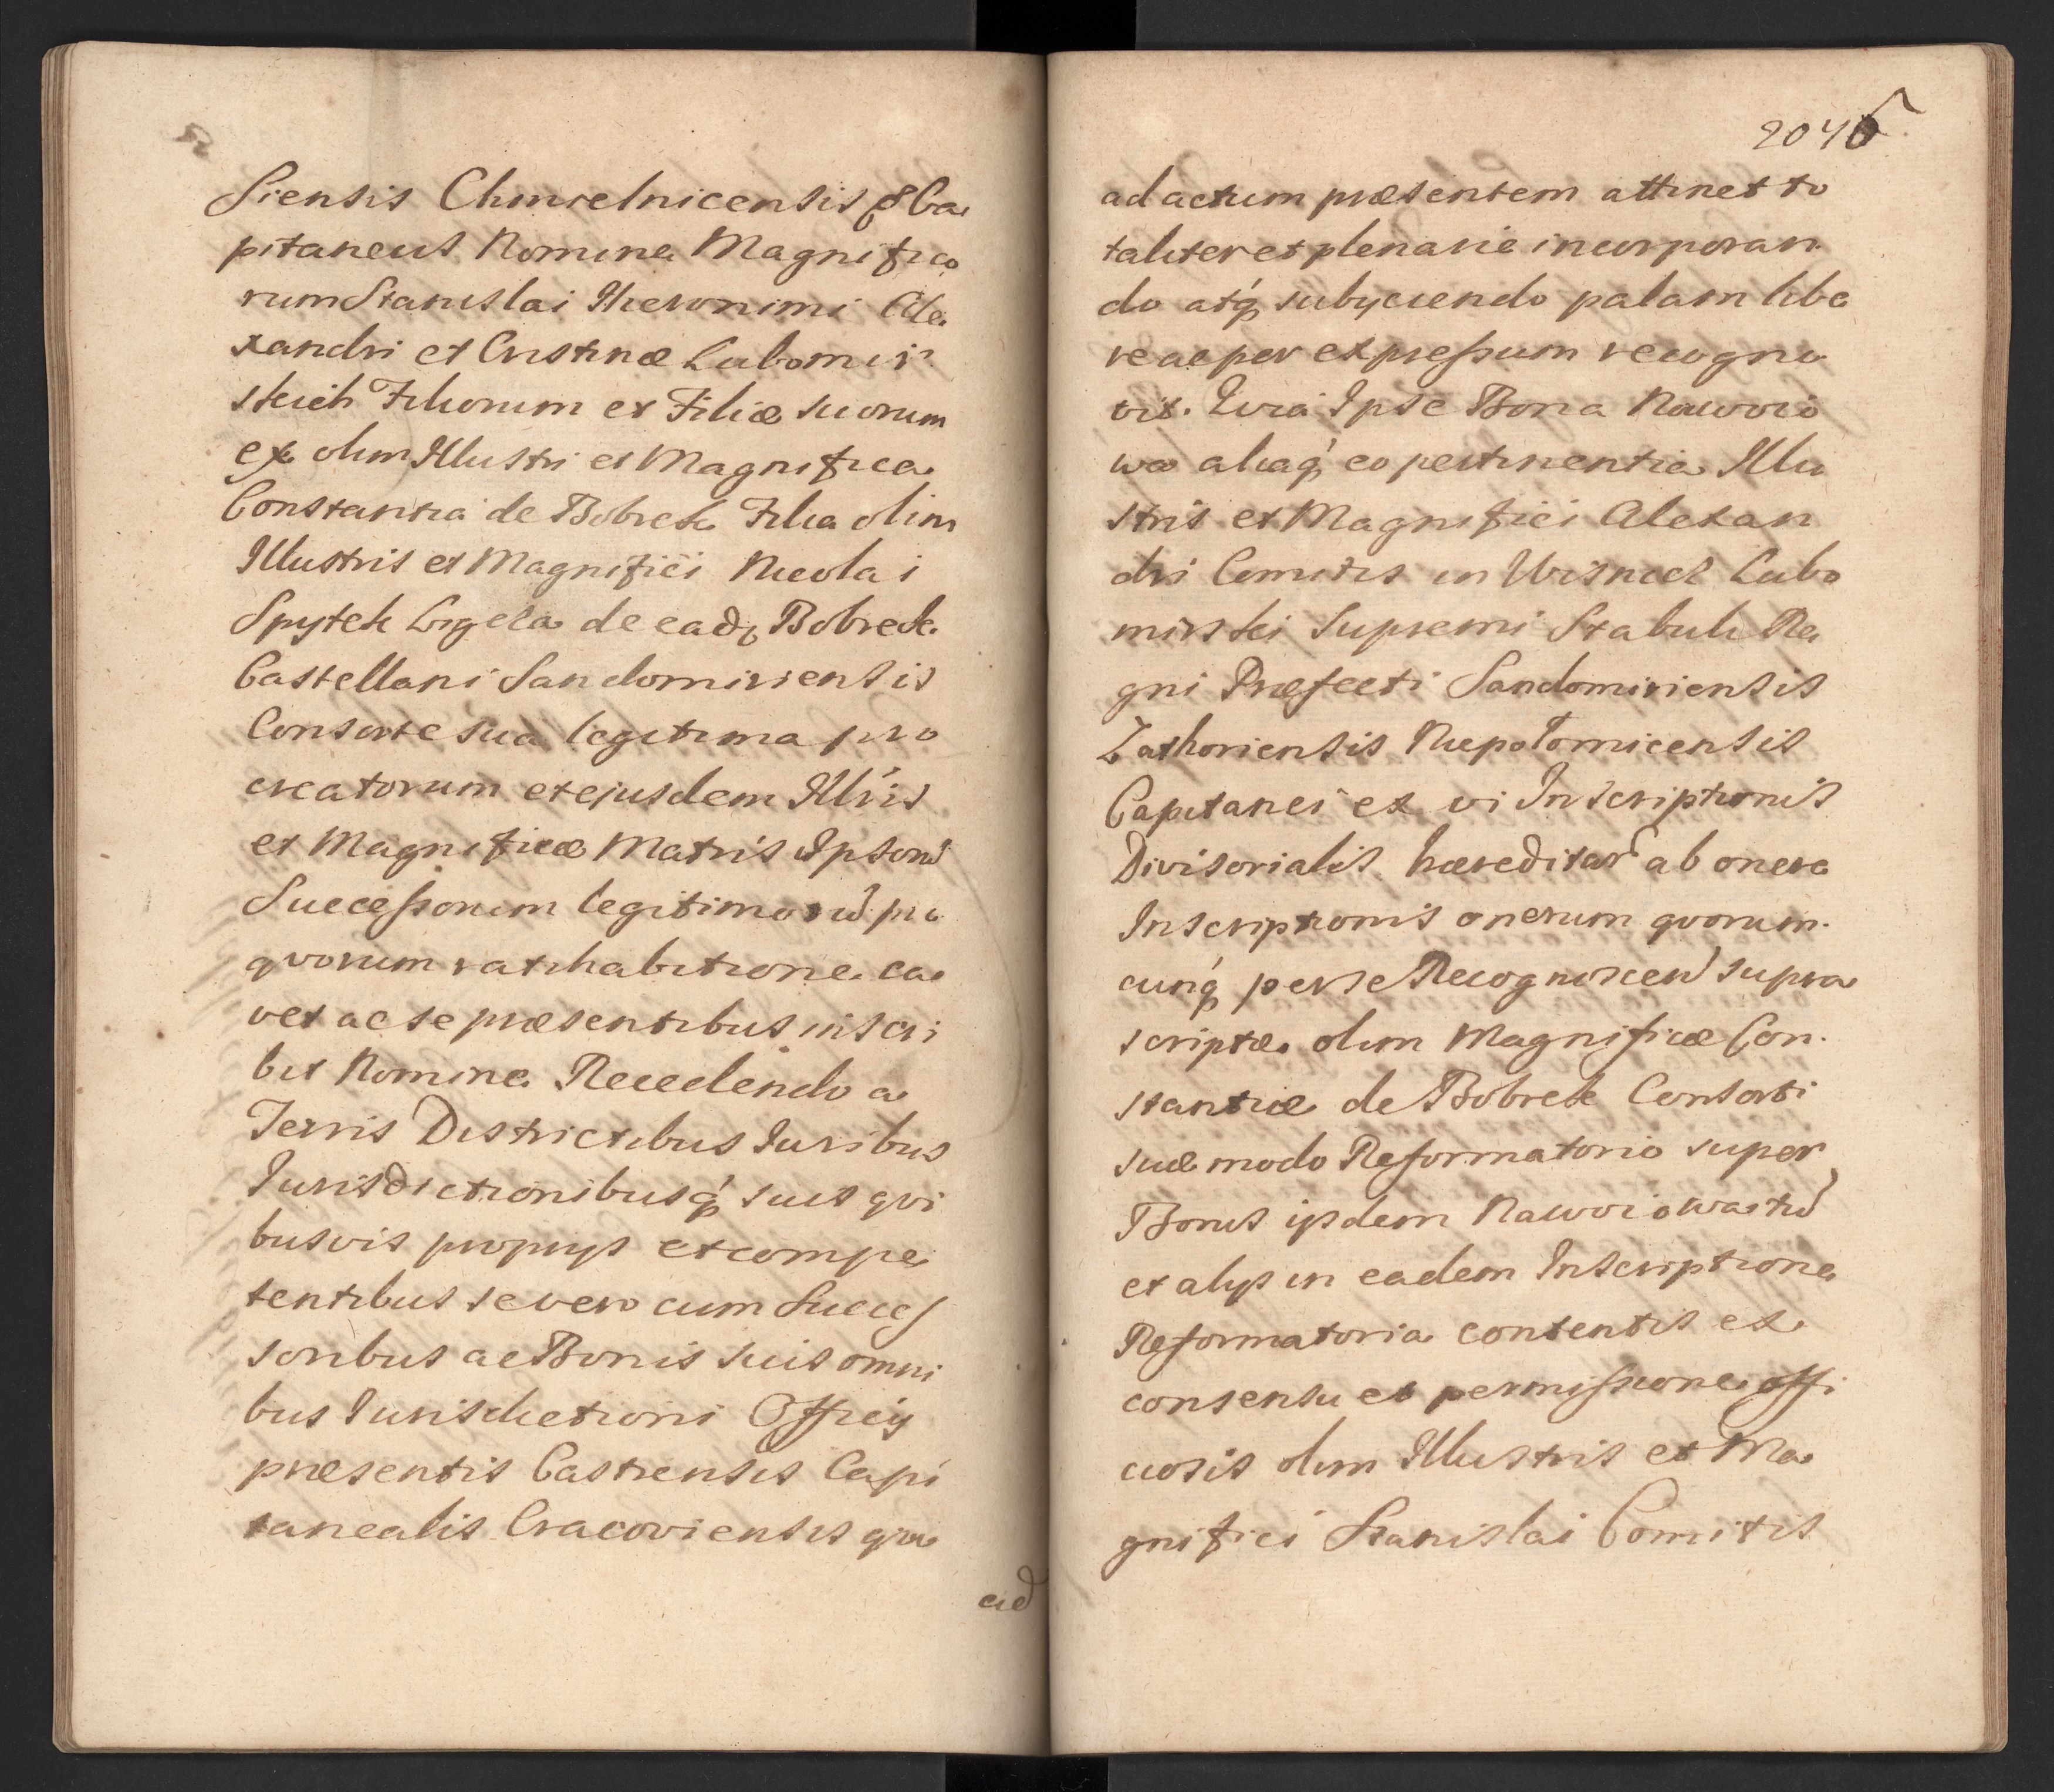 siensis Chmielnicensis & Ca
pitaneus Nomine Magnifico
rum Stanislai Hieronimi Ale
xandri et Cristinæ Lubomir
skich Filiorum et Filiæ suorum
ex olim Illustri et Magnifica
Constantia de Bobrek Filia olim
Illustris et Magnifici Nicolai
Spytek Ligęza de eadꝫ Bobrek
Castellani Sandomiriensis
Consorte sua legitima pro
creatorum et ejusdem Illris
et Magnificæ Matris Ipsorũ
Successorum legitimorũ pro
qvorum ratihabitione ca
vet ac se præsentibus inscri
bit Nomine Recedendo a
Terris Districtibus Iuribus
Iurisdictionibusq́ suis qvi
busvis proprys et compe
tentibus se vero cum Succes
soribus ac Bonis suis omni
bus Iurisdictioni Officÿ
præsentis Castrensis Capi
tanealis Cracoviensis qvo
ad
2046
ad actum præsentem attinet to
taliter et plenarie incorporan
do atq́ subyciendo palam libe
re ac per expressum recogno
vit. Qvia Ipse Bona Nawoio
wa aliaq́ eo pertinentia Illu
stris et Magnifici Alexan
dri Comitis in Wisnicz Lubo
mirski Supremi Stabuli Re
gni Præfecti Sandomiriensis
Zathoriensis Niepolomicensis
Capitanei ex vi Inscriptionis
Divisorialis hæreditar ab onere
Inscriptionis onerum qvorum
cunq́ per se Recognoscen supra
scriptæ olim Magnificæ Con
stantiæ de Bobrek Consorti
suæ modo Reformatorio super
Bonis ijsdem Nawoiowa tũ
et alijs in eadem Inscriptione
Reformatoria contentis ex
consensu et permissione offi
ciosis olim Illustris et Ma
gnifici Stanislai Comitis